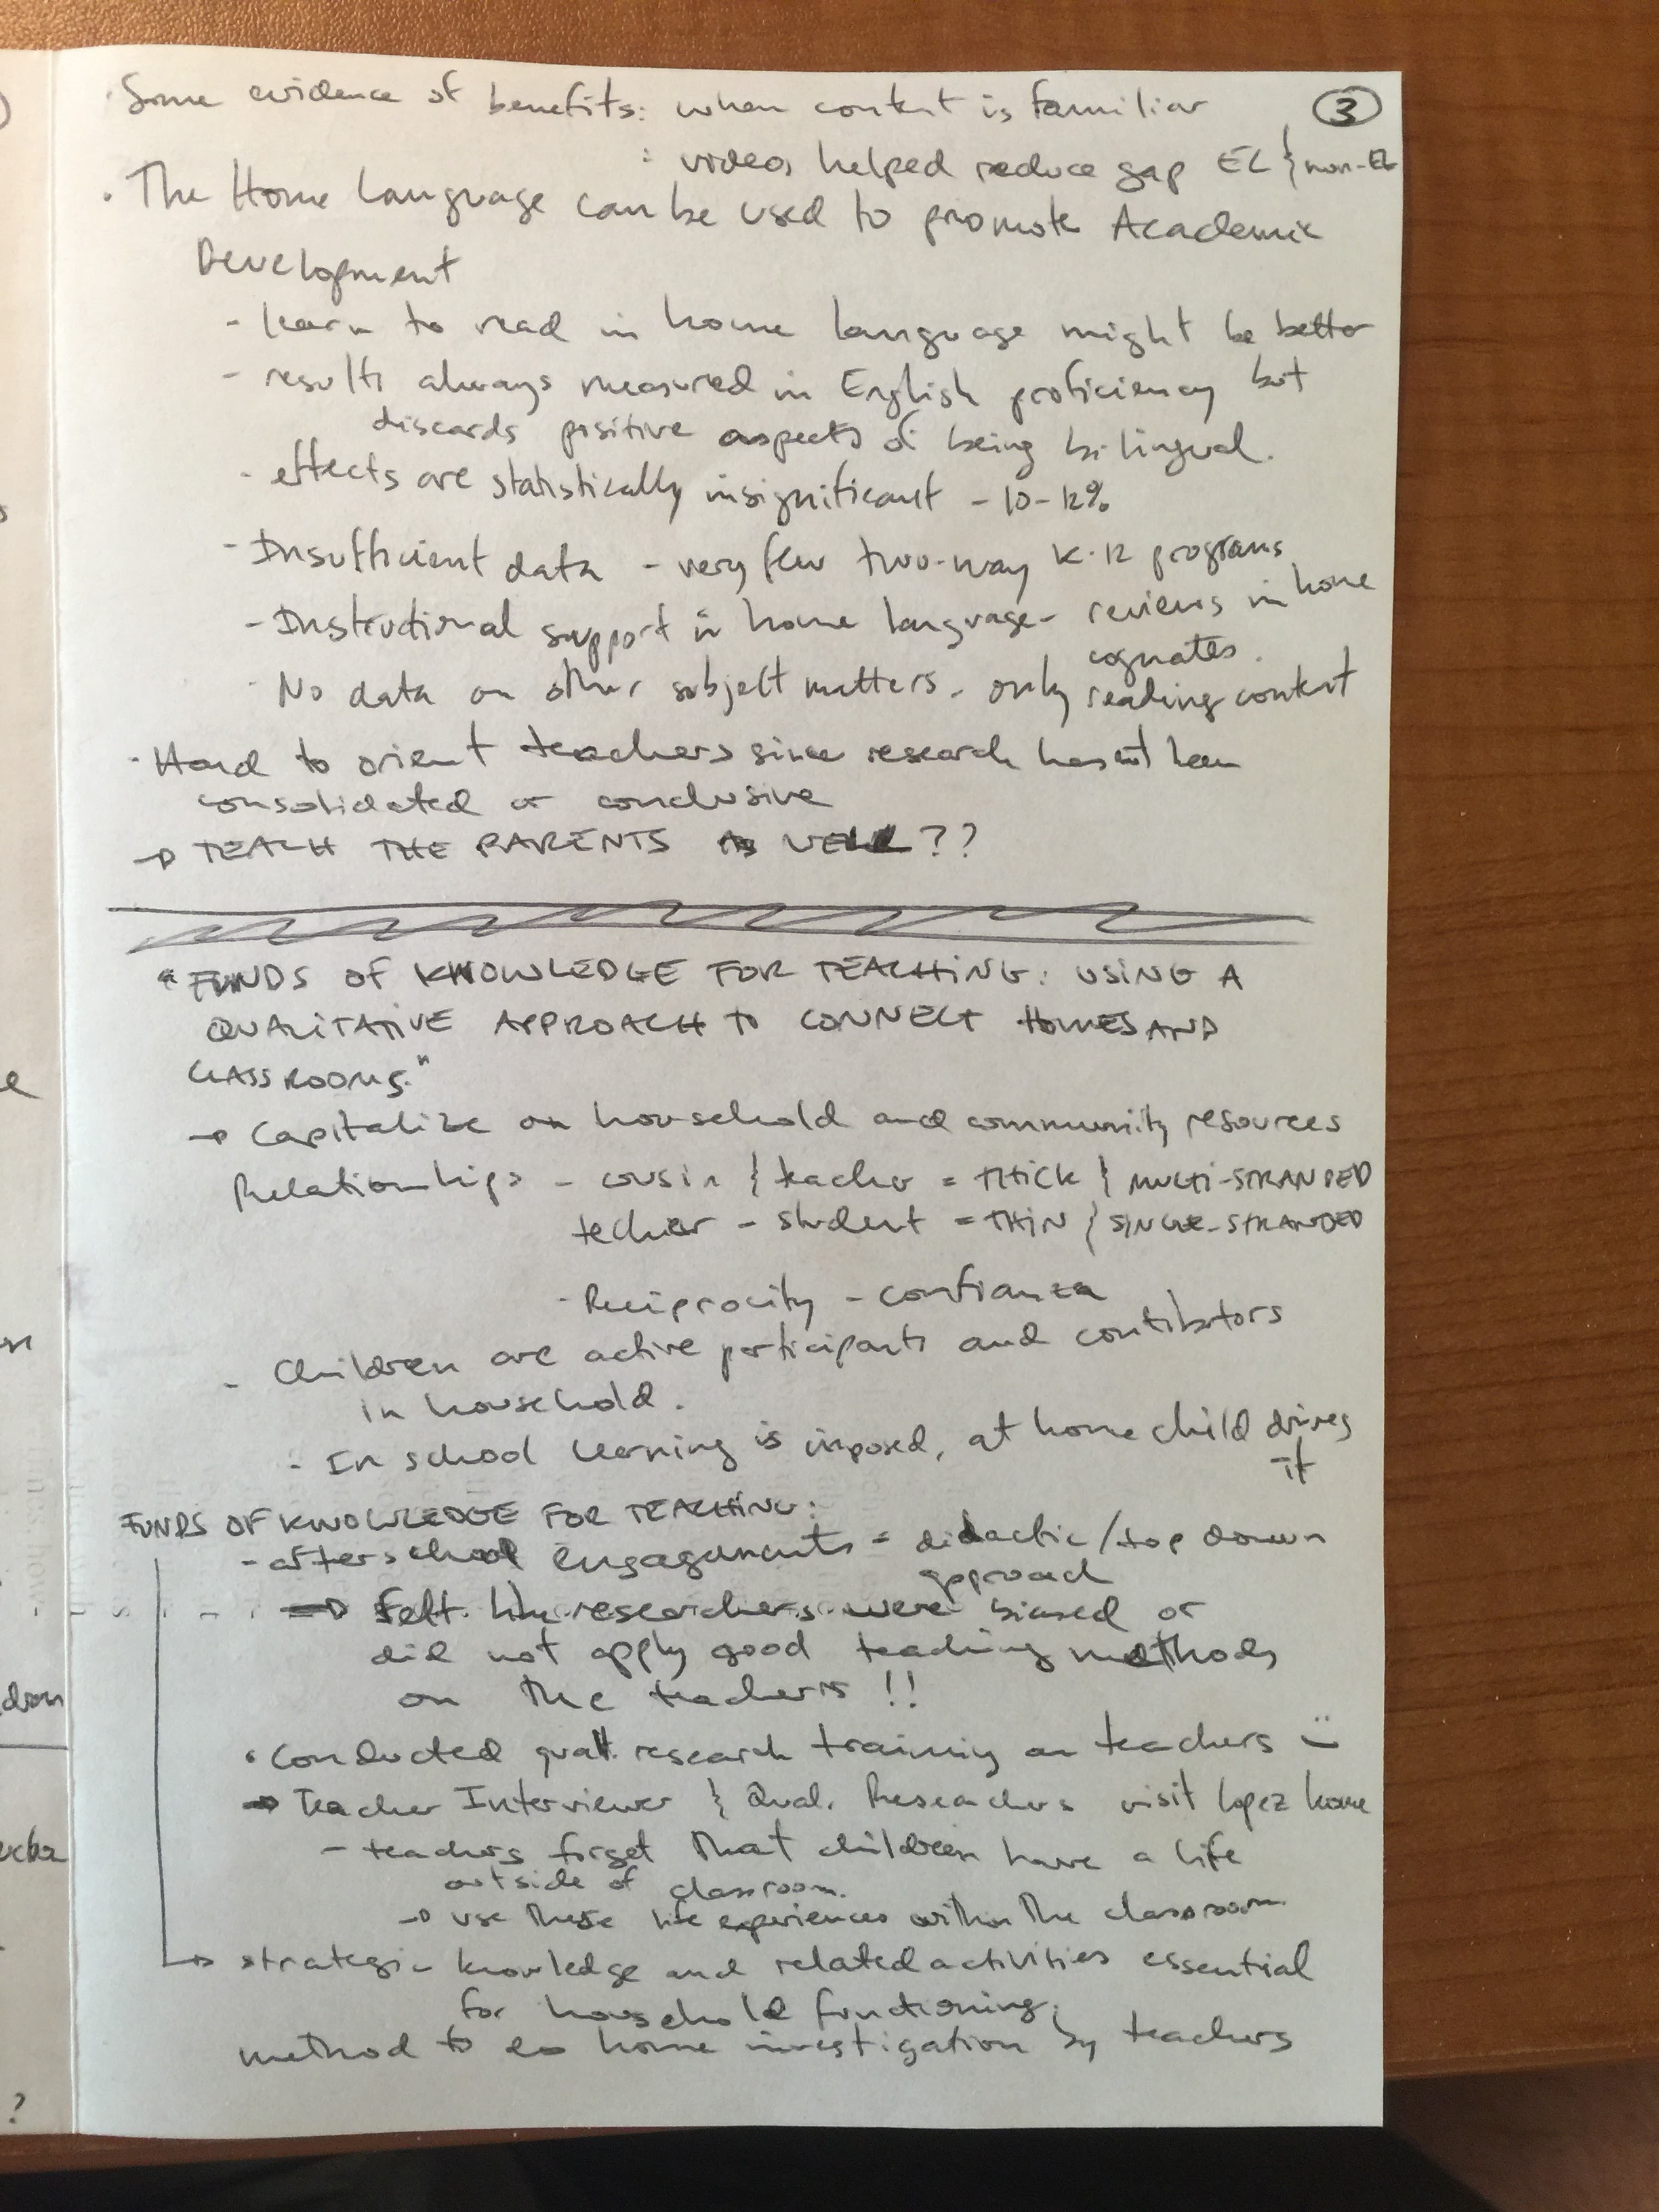 · Some evidence of benefits: when content is familiar
③
: videos helped reduce gap EL } non-EL
· The Home Language can be used to promote Academic
Development
- learn to read in home language might be better
- results always measured in English proficiency but
discards positive aspects of being bilingual.
- effects are statistically insignificant - 10-12%
- Insufficient data - very few two-way K-12 programs
- Instructional support in home language - reviews in home
cognates.
- No data on other subject matters. only reading content
· Hard to orient teachers since research has not been
consolidated or conclusive
→ TEACH THE PARENTS AS WELL??
"FUNDS OF KNOWLEDGE FOR TEACHING: USING A
QUALITATIVE APPROACH TO CONNECT HOMES AND
CLASSROOMS."
→ Capitalize on household and community resources
Relationships - cousin } teacher = THICK } MULTI-STRANDED
techer - student = THIN } SINGLE-STRANDED
- Reciprocity - confianza
- Children are active participants and contibutors
in household.
- In school learning is imposed, at home child drives
it
FUNDS OF KNOWLEDGE FOR TEACHING:
- after school engagements = didactic/top down
approach
⇒ Felt like researchers were biased or
did not apply good teaching methods
on the teachers !!
· Conducted qualt. research training on teachers :)
→ Teacher Interviewer } Qual. Researchers visit Lopez home
- teachers forget that children have a life
outside of classroom.
→ use these life experiences within the classroom
→ strategic knowledge and related activities essential
for household functioning.
method to do home investigation by teachers